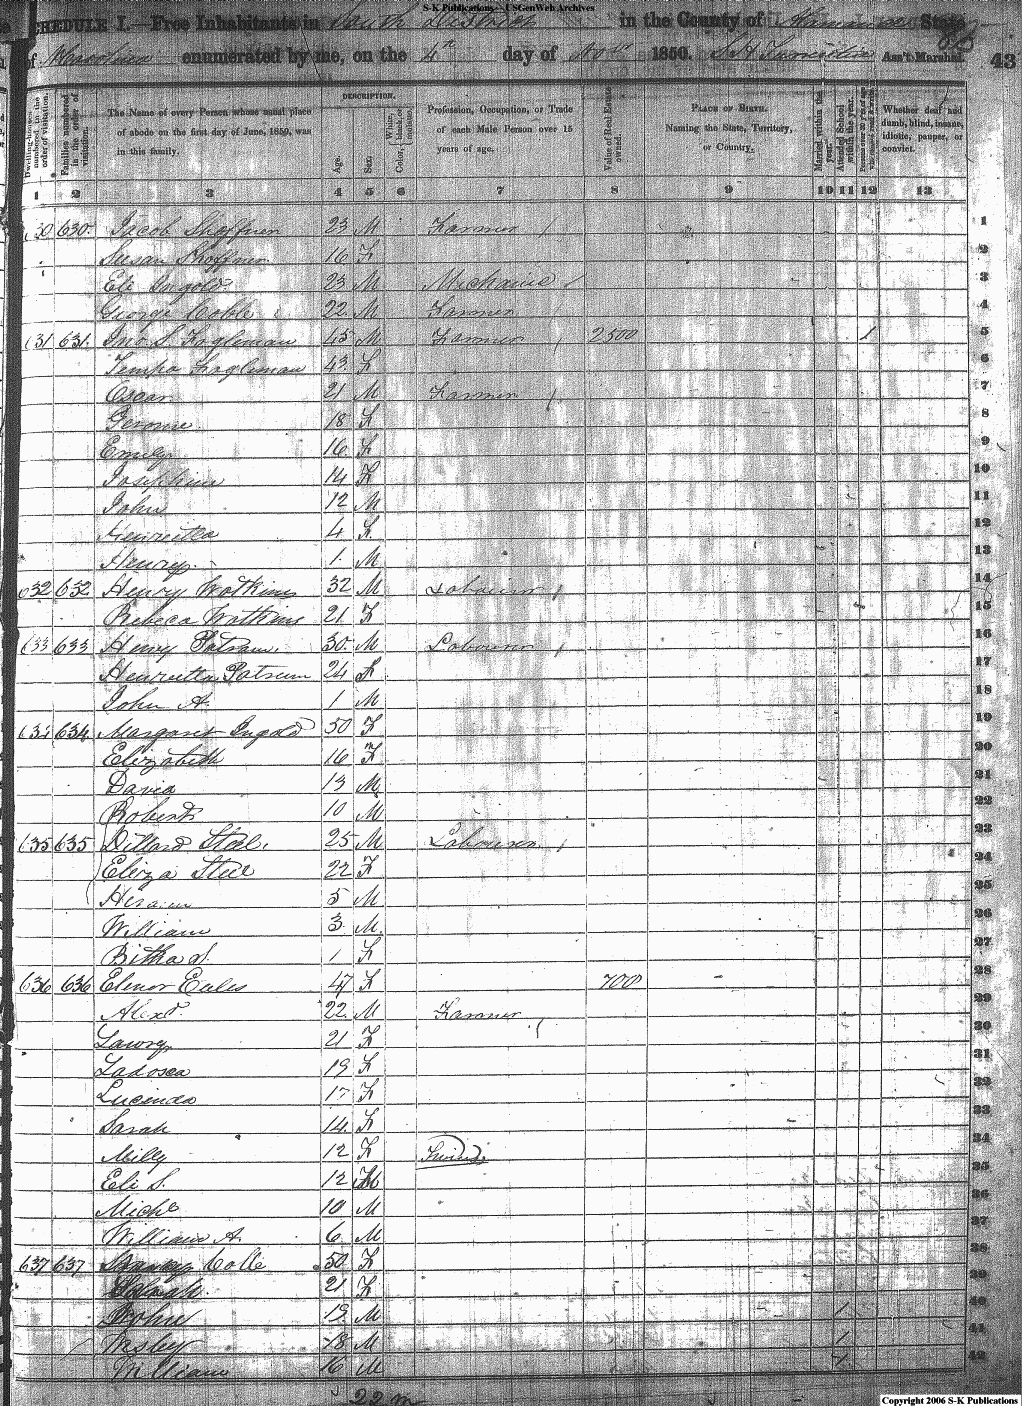 S-K Publications - USGenWeb Archives
SCHEDULE I.—Free Inhabitants in South District in the County of State
of enumerated by me, on the 4th day of Novr 1850. Ass't Marshal. 43
DESCRIPTION.
Dwelling-houses numbered in the order of visitation. Families numbered in the order of visitation. The Name of every Person whose usual place of abode on the first day of June, 1850, was in this family. Age. Sex. Color, White, black, or mulatto. Profession, Occupation, or Trade of each Male Person over 15 years of age. Value of Real Estate owned. PLACE OF BIRTH. Naming the State, Territory, or Country. Married within the year. Attended School within the year. Whether deaf and dumb, blind, insane, idiotic, pauper, or convict.
1 2 3 4 5 6 7 8 9 10 11 12 13
630 630 Jacob Shoffner 23 M Farmer / 1
Susan Shoffner 16 F 2
Eli Ingold 23 M Mechanic / 3
George Coble 22 M Farmer / 4
631 631 Jno S. Fogleman 45 M Farmer / 2500 1 5
Tempa Fogleman 43 F 6
Oscar 21 M Farmer / 7
Jerome 18 F 8
Emily 16 F 9
Josephine 14 F 10
John 12 M 11
Henrietta 4 F 12
Henry 1 M 13
632 632 Henry Watkins 32 M Labourer / 14
Rebeca Watkins 21 F 15
633 633 Henry Patram 30 M Labourer / 16
Henrietta Patrum 24 F 17
John A. 1 M 18
634 634 Margaret Ingold 50 F 19
Elizabeth 16 F 20
David 13 M 21
Robert 10 M 22
635 635 Dillard Steel 25 M Labourer / 23
Eliza Steel 22 F 24
Hiram 5 M 25
William 3 M 26
Bitha S. 1 F 27
636 636 Elenor Eules 47 F 700 28
Alexr 22 M Farmer / 29
Lawry 21 F 30
Ladosca 19 F 31
Lucinda 17 F 32
Sarah 14 F 33
Milly 12 F Twins 34
Eli S. 12 M 35
Miche 10 M 36
William A. 6 M 37
637 637 Coble 50 F 38
21 F 39
John 19 M 1 40
Wesley 18 M 1 41
William 16 M 1 42
22 m
Copyright 2006 S-K Publications